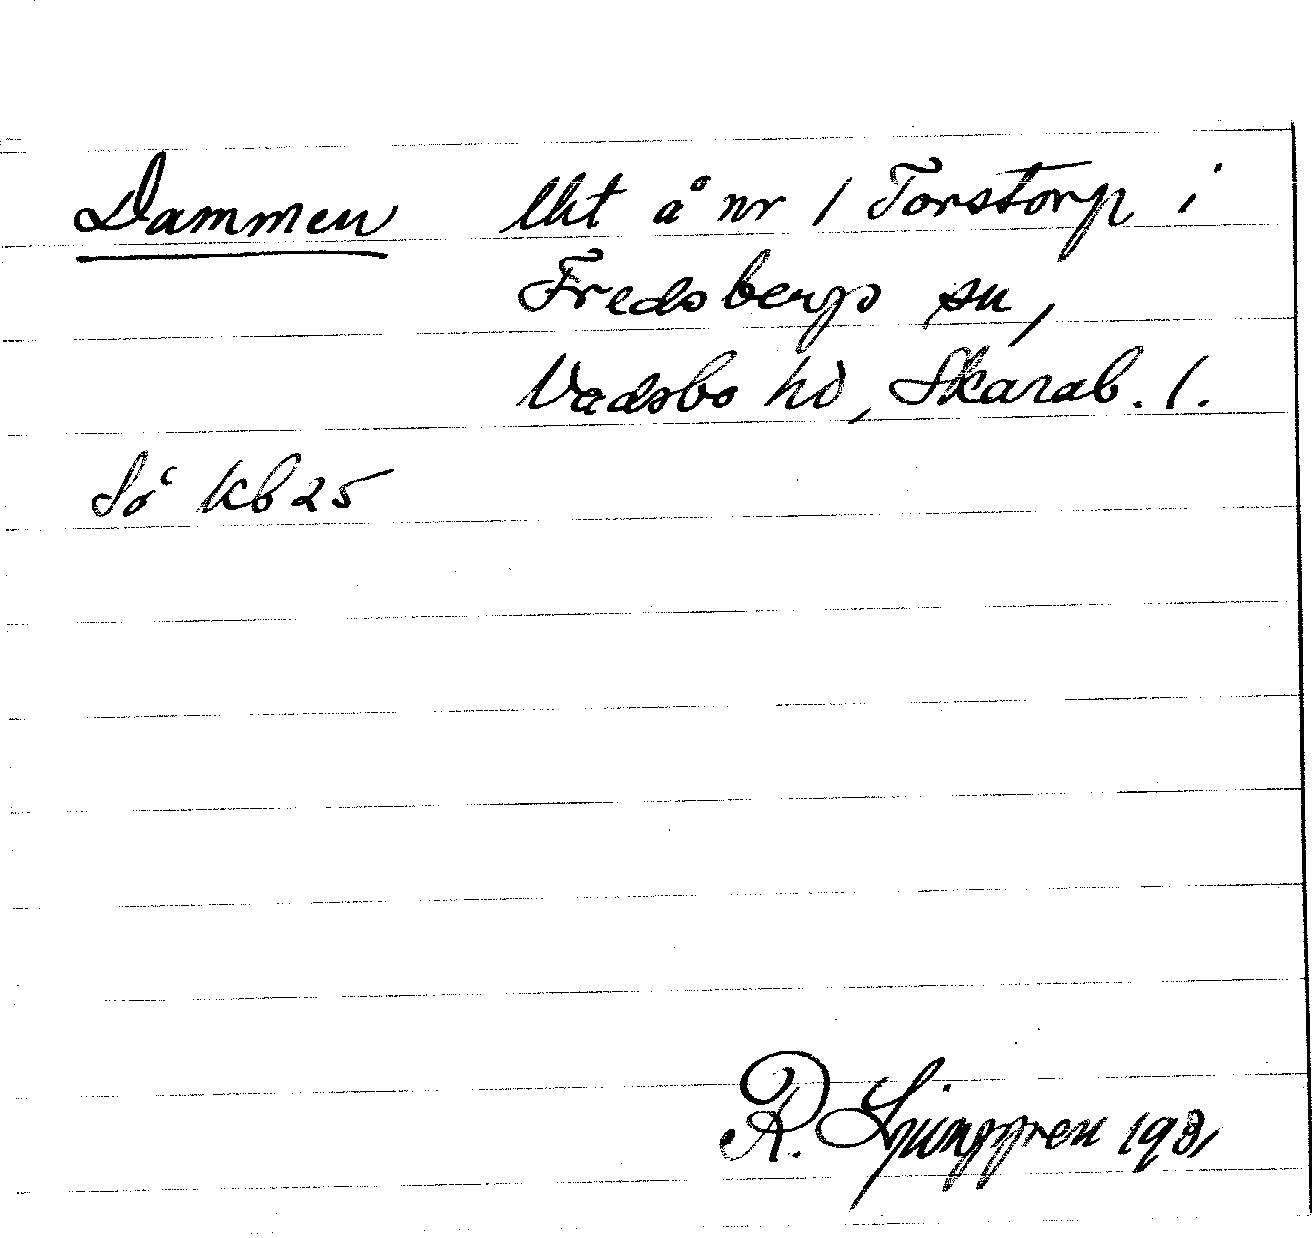 Dammen lht å nr 1 Torstorp i
Fredsbergs sn,
Vadsbo hd, Skarab. l.
Sö kb 25
R. Ljunggren